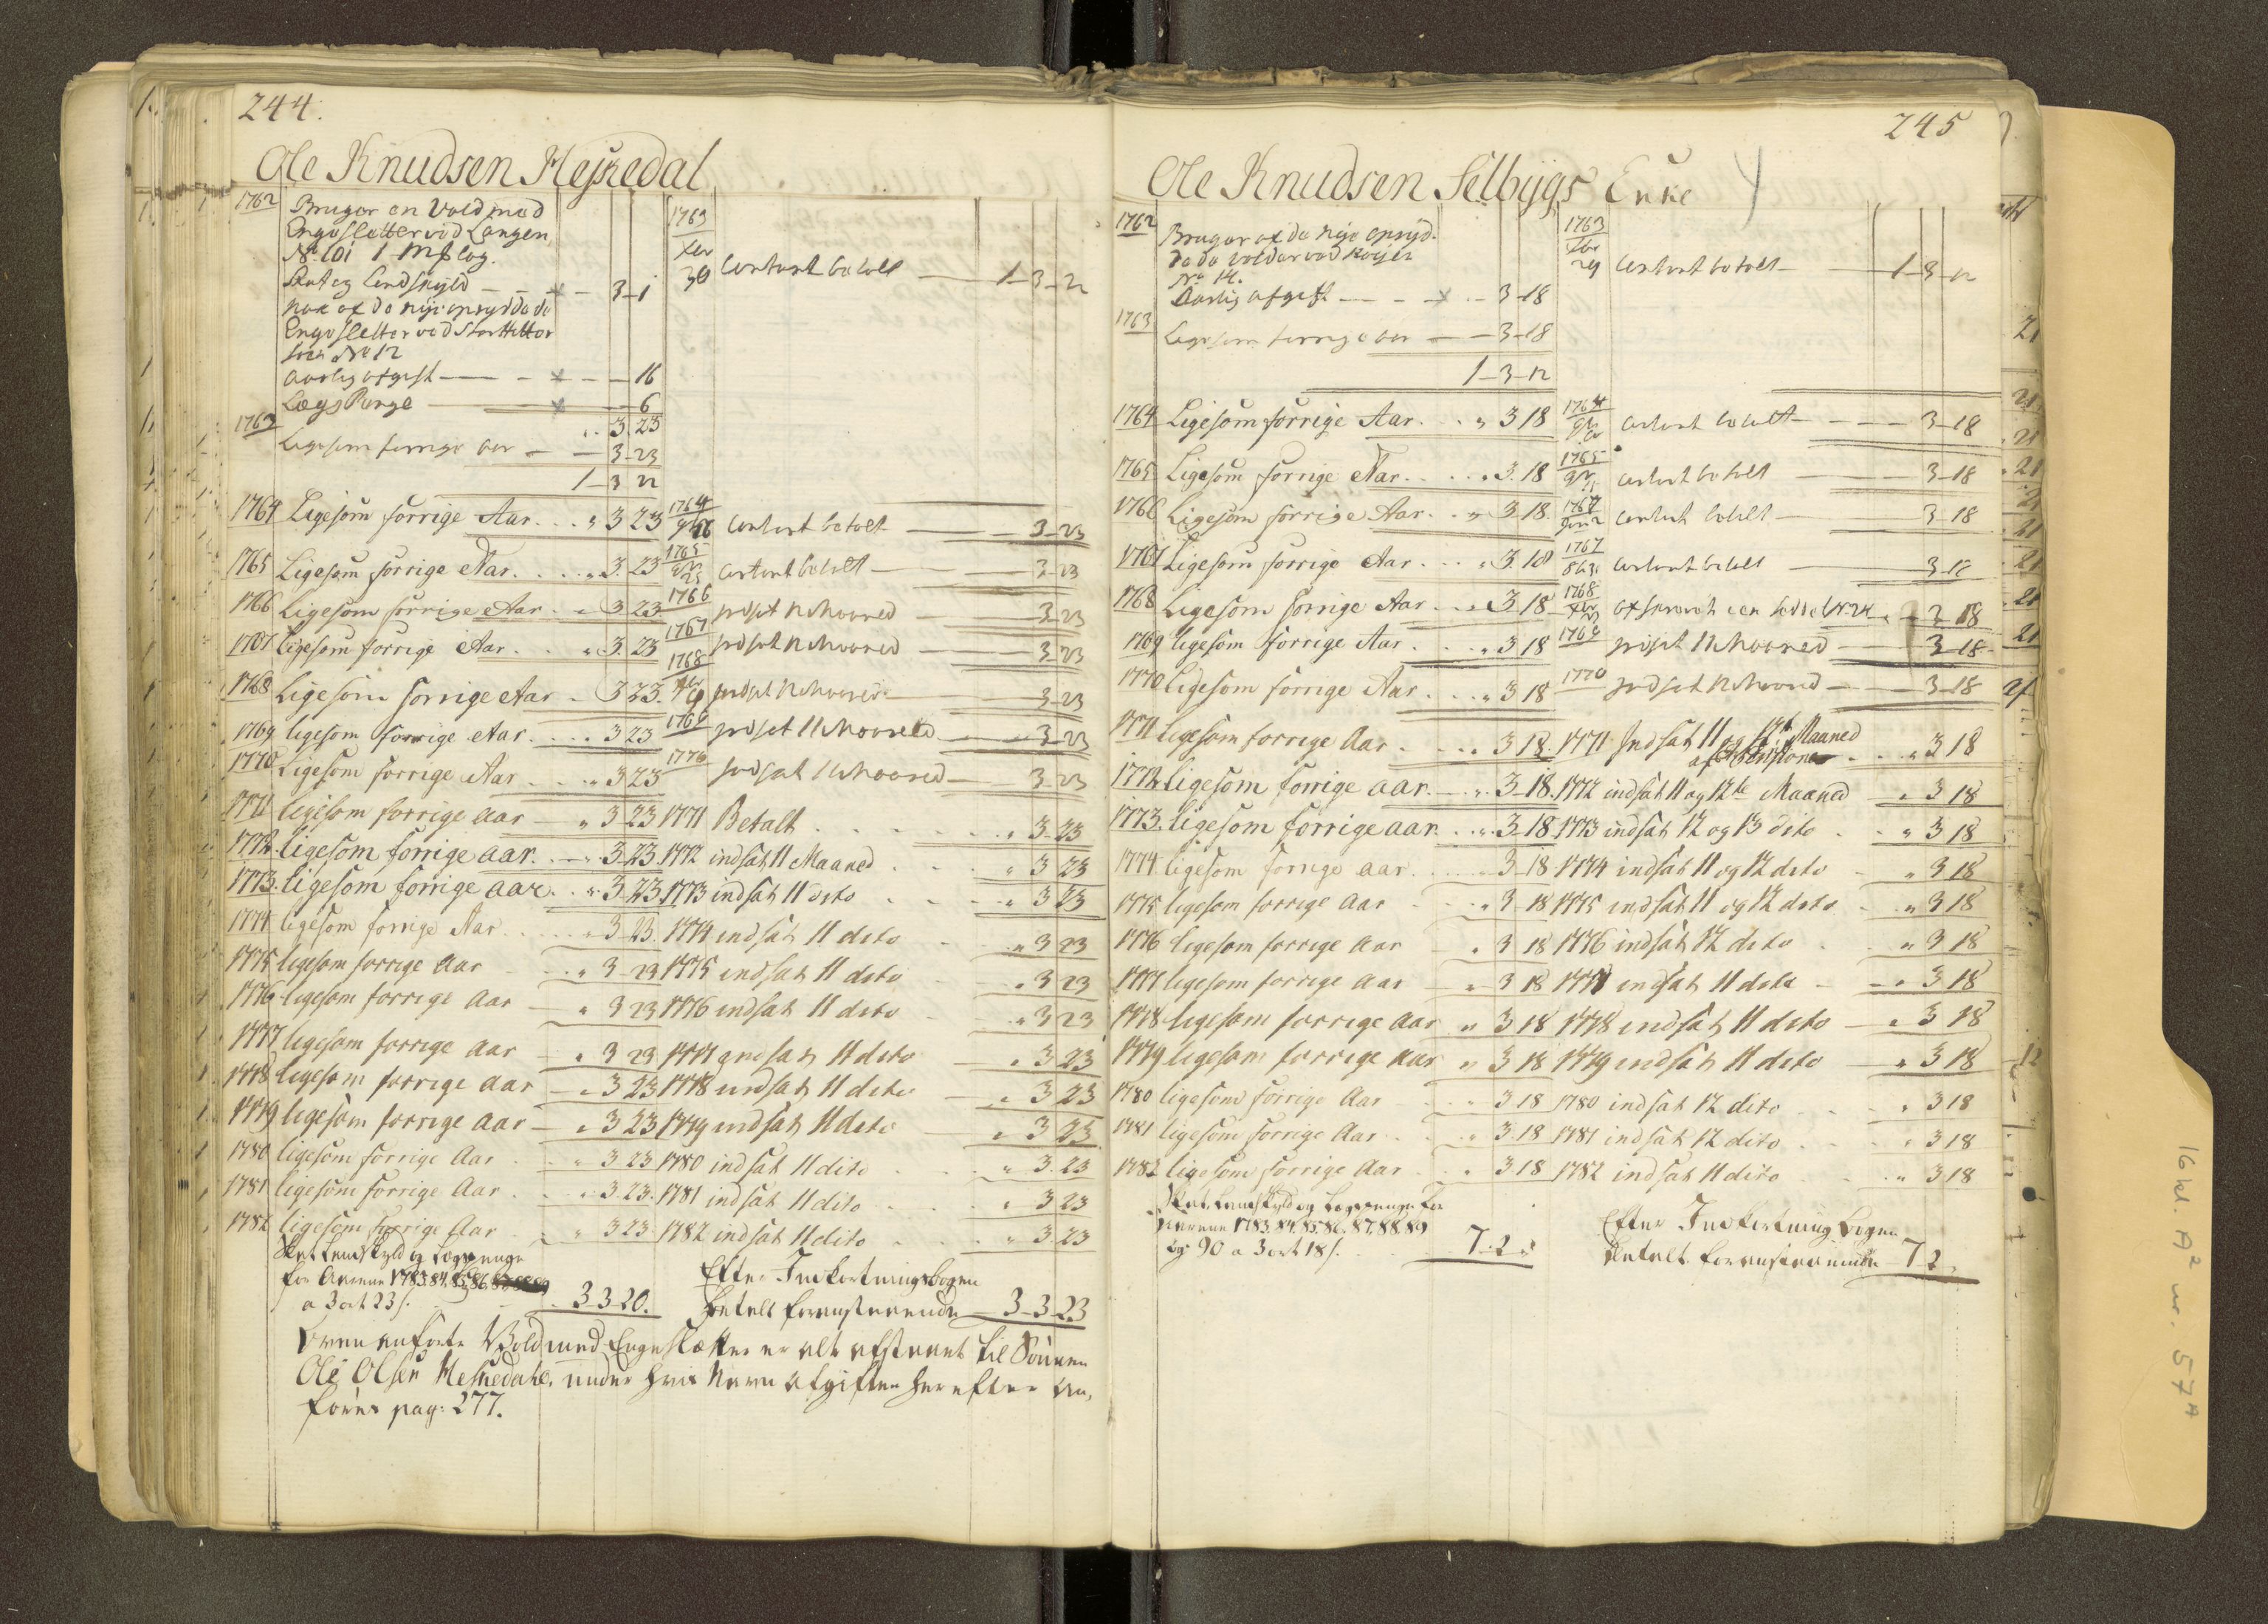 244.
Ole Knudsen Heskedal
1762 Bruger en Vold med
Engesletter ved Langen
No. 101 1 Mk laug.
Skat og Landskyld - - 3-1
Nok af de nÿe opryddede
Engesletter ved
No 12
aarlig afgift - - 16
Lægs Penge - 6
3.23
1763 Ligesom forrige aar - 3-23
1-3-22
1763
xbr
30 Contant betalt - 1-3-22
1764 Ligesom forrige Aar. . . " 3 23 1764 Contant betalt - 3-23
1765 Ligesom forrige Aar. . . . " 3.23 1765 Contant betalt - 3-23
1766 Ligesom forrige Aar . . " 3 23 1766 indsat 12 Maaned - 3-23
1767 Ligesom forrige Aar . . " 3.23 1767 indsat 12 Maaned - 3-23
1768 Ligesom forrige Aar - 3 23. 1768 indsat 12 Maaned - 3-23
1769 ligesom forrige Aar. . . . 3 23 1769 indsat 11 Maaned - 3-23
1770 Ligesom forrige Aar . . . " 3 23 1770 indsat 12 Maaned - 3-23
1771 ligesom forrige aar - " 3 23 1771 Betalt . . . . " 3 23
1772. ligesom forrige aar. . - " 3.23 1772 indsat 11 Maaned . . " 3 23
1773. ligesom forrige aar. . " 3-23 1773 indsat 11 dito . . . " 3 23
1774 ligesom forrige Aar . . . " 3 23. 1774 indsat 11 dito . . " 3 23
1775 ligesom forrige Aar . . " 3-23 1775 indsat 11 dito . " 3 23
1776 ligesom forrige Aar - " 3 23 1776 indsat 11 dito - " 3 23
1777 ligesom forrige Aar - " 3 23 1777 indsat 11 dito - " 3 23
1778 ligesom forrige Aar - " 3 23 1778 indsat 11 dito - " 3 23
1779 ligesom forrige Aar - " 3 23 1779 indsat 11 dito - " 3 23
1780 ligesom forrige Aar . . " 3 23 1780 indsat 11 dito . . " 3.23
1781 ligesom forrige Aar . . " 3.23. 1781 indsat 11 dito . . . " 3 23
1782 ligesom forrige Aar . . " 3 23. 1782 indsat 11 dito . . " 3.23
Skat Landskyld og Lægspenge
for Aarene 1783. 84. 85. 86.
a 3 ort 23 s. . . 3-3-20.
Efter Indkortningsbogen
betalt foranstaaende - 3-3-23
Oven anførte Vold med Engeslætter er alt afstaaet til Sønnen
Ole Olsen Heskedahl, under hvis Navn afgiften herefter an,
føres pag: 277.
245
Ole Knudsen Selbÿgs Enke
1762 Bruger af de nÿe opryd-
dede volder ved
No 14.
Aarlig afgift - - - 3-18
1763 Ligesom forrige aar - - 3-18
1-3-12
1763
xbr
29 Contant betalt - 1-3-12
1764 Ligesom forrige Aar. . " 3 18 1764 Contant betalt - - - 3-18
1765 Ligesom forrige Aar. . . . " 3.18 1765 Contant betalt - 3-18
1766 Ligesom forrige Aar. . " 3 18. 1767 Contant betalt - 3-18
1767 Ligesom forrige Aar . . " 3 18 1767 Contant betalt - 3-18
1768 Ligesom forrige Aar . . " 3 18 1768 afskrevet No 24 3 18
1769 ligesom forrige Aar . . . " 3 18 1769 indsat 12 Maaned - 3-18
1770 ligesom forrige Aar . . . " 3 18 1770 indsat 12 Maaned - 3-18
1771 ligesom forrige Aar . . . " 3 18. 1771 Indsat 11 og 12te Maaned
af Pensionen . . " 3 18
1772 ligesom forrige aar. - " 3-18. 1772 indsat 11 og 12te Maaned - " 3 18
1773. ligesom forrige aar. . . " 3-18 1773 indsat 12 og 13 dito . . " 3 18
1774 ligesom forrige aar . . . " 3-18 1774 indsat 11 og 12 dito - " 3 18
1775 ligesom forrige Aar . . " 3-18 1775 indsat 11 og 12 dito . " 3 18
1776 ligesom forrige Aar - " 3 18 1776 indsat 12 dito . " 3 18
1777 ligesom forrige Aar - " 3 18 1777 indsat 11 dito - - " 3 18
1778 ligesom forrige Aar " 3 18 1778 indsat 11 dito - " 3 18
1779 ligesom forrige Aar " 3 18 1779 indsat 11 dito - " 3 18
1780 ligesom forrige Aar . . " 3 18 1780 indsat 12 dito . . " 3 18
1781 ligesom forrige Aar . . " 3.18 1781 indsat 12 dito . . . " 3 18
1782 ligesom forrige Aar . . " 3.18 1782 indsat 11 dito . . . " 3 18
Skat Landskyld og Lægspenge for
Aarene 1783. 84. 85. 86. 87. 88. 89
og 90 a 3 ort 18 s. . . 7-2-"
Efter Indkortning Bogen
betalt foranstaaende - 7 2.
16 kl. A² nr. 57 A